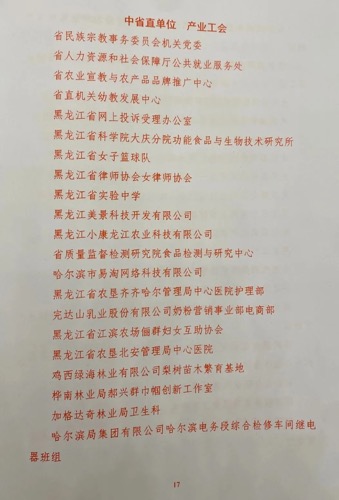 中省直单位 产业工会
省民族宗教事务委员会机关党委
省人力资源和社会保障厅公共就业服务处
省农业宣教与农产品品牌推广中心
省直机关幼教发展中心
黑龙江省网上投诉受理办公室
黑龙江省科学院大庆分院功能食品与生物技术研究所
黑龙江省女子篮球队
黑龙江省律师协会女律师协会
黑龙江省实验中学
黑龙江美景科技开发有限公司
黑龙江小康龙江农业科技有限公司
省质量监督检测研究院食品检测与研究中心
哈尔滨市易淘网络科技有限公司
黑龙江省农垦齐齐哈尔管理局中心医院护理部
完达山乳业股份有限公司奶粉营销事业部电商部
黑龙江省江滨农场俪群妇女互助协会
黑龙江省农垦北安管理局中心医院
鸡西绿海林业有限公司梨树苗木繁育基地
桦南林业局郝兴群巾帼创新工作室
加格达奇林业局卫生科
哈尔滨局集团有限公司哈尔滨电务段综合检修车间继电
器班组
17